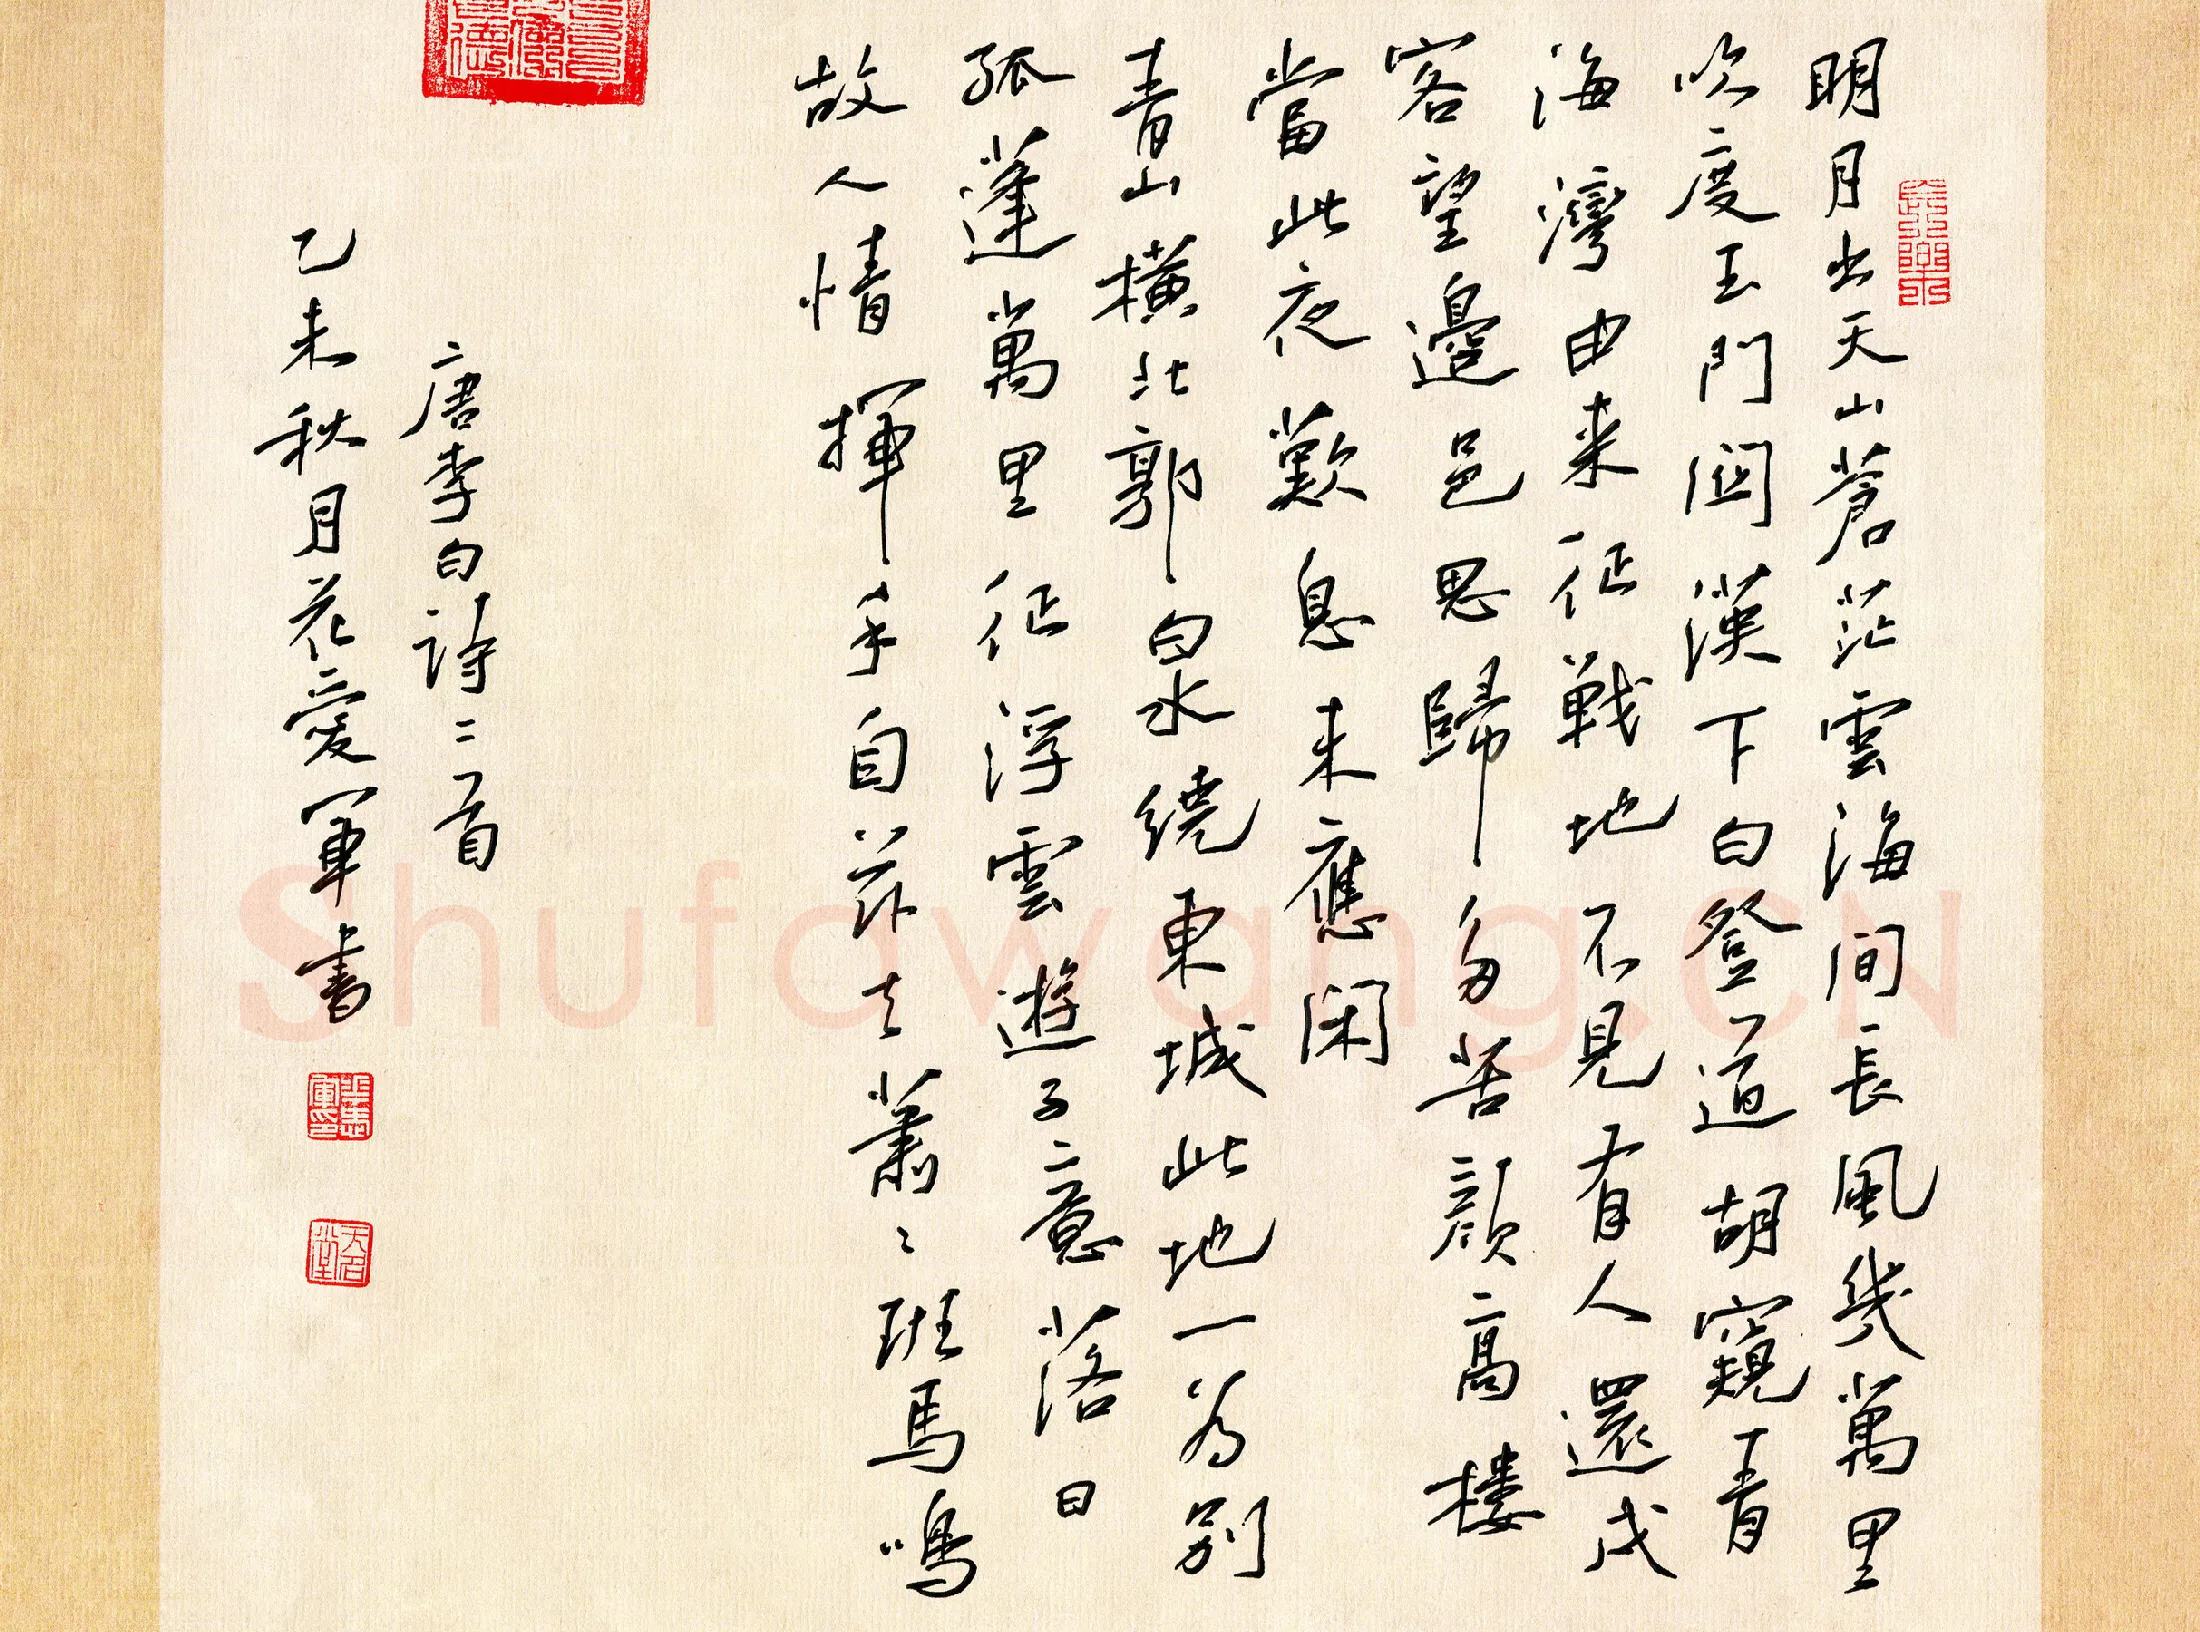 明月出天山蒼茫雲海间長風幾萬里
吹度玉門関漢下白登道胡窺青
海灣由来征戰地不見有人還戍
客望邊邑思歸多苦顔高楼
當此夜歎息未應闲
青山橫北郭白水绕東城此地一为别
孤蓬萬里征浮雲遊子意落日
故人情揮手自兹去蕭〻班馬鳴
唐李白詩二首
乙未秋月花愛軍書
Shufawang.CN